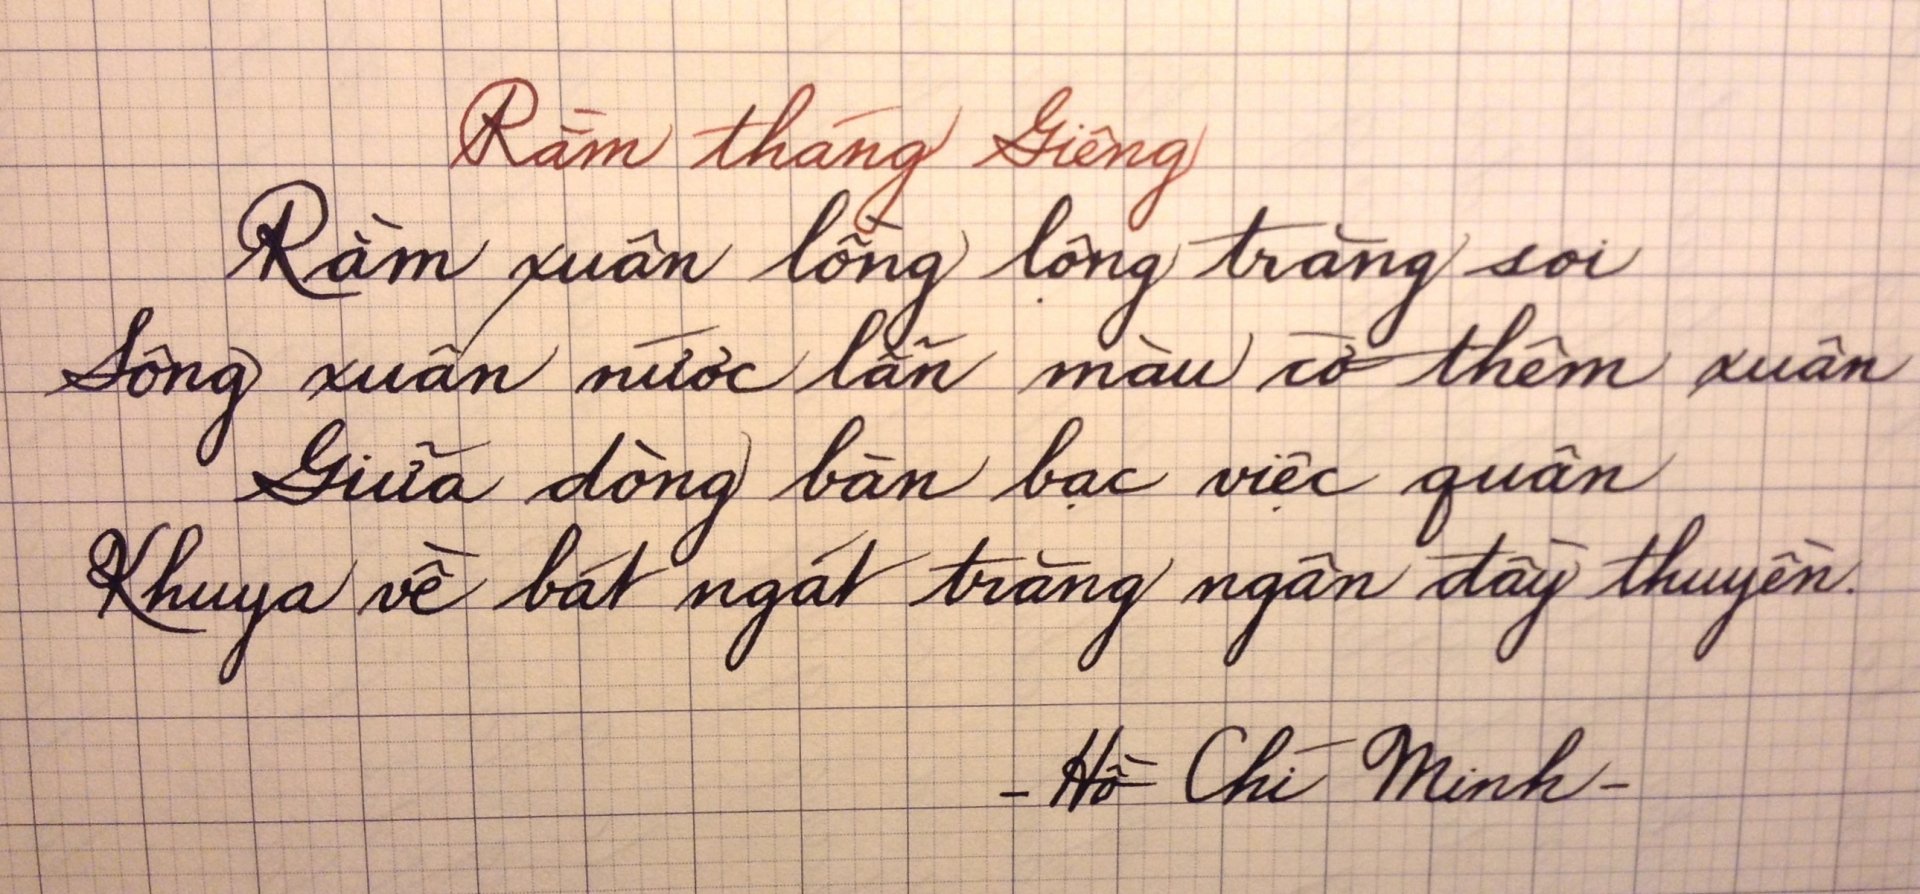 Rằm tháng Giêng
Rằm xuân lồng lộng trăng soi
Sông xuân nước lẫn màu trời thêm xuân
Giữa dòng bàn bạc việc quân
Khuya về bát ngát trăng ngân đầy thuyền.
- Hồ Chí Minh -